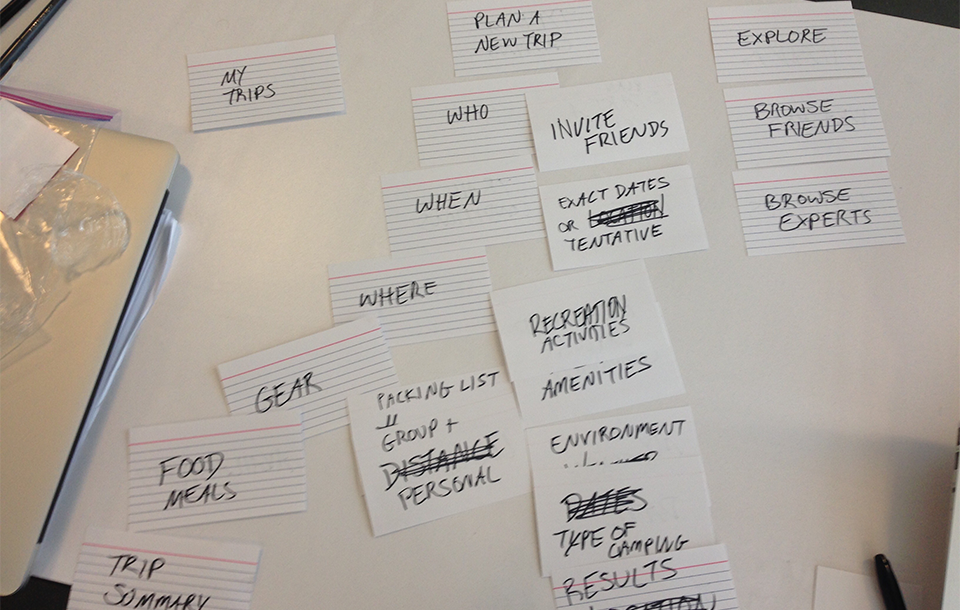 MY
TRIPS
PLAN A
NEW TRIP
WHO
INVITE
FRIENDS
WHEN
EXACT DATES
OR LOCATION
TENTATIVE
WHERE
RECREATION
ACTIVITIES
AMENITIES
ENVIRONMENT
DATES
TYPE OF
CAMPING
RESULTS
GEAR
PACKING LIST
GROUP +
DISTANCE
PERSONAL
FOOD
MEALS
TRIP
SUMMARY
EXPLORE
BROWSE
FRIENDS
BROWSE
EXPERTS